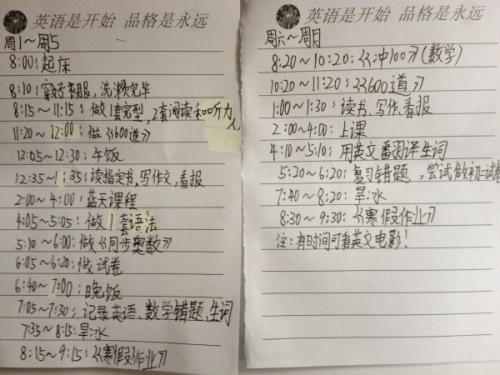 英语是开始 品格是永远
周1~周5
8:00:起床
8:10:穿好衣服,洗漱完毕
8:15~11:15:做1套完型,2套阅读和听力
11:20~12:00:做《600道》
12:05~12:30:午饭
12:35~1:35:读指定书,写作文,看报
2:00~4:00:蓝天课程
4:05~5:05:做1套语法
5:10~6:00:做《同步奥数》
6:05~6:20:做试卷
6:40~7:00:晚饭
7:05~7:30:记录英语、数学错题、生词
7:35~8:15:旱冰
8:15~9:15:《寒假作业》
英语是开始 品格是永远
周六~周日
8:20~10:20:《冲100》(数学)
10:20~11:20:《600道》
1:00~1:30:读书,写作,看报
2:00~4:00:上课
4:10~5:10:用英文翻译生词
5:20~6:20:复习错题,尝试做初一试卷
7:40~8:20:旱冰
8:30~9:30:《寒假作业》
注:有时间可看英文电影!